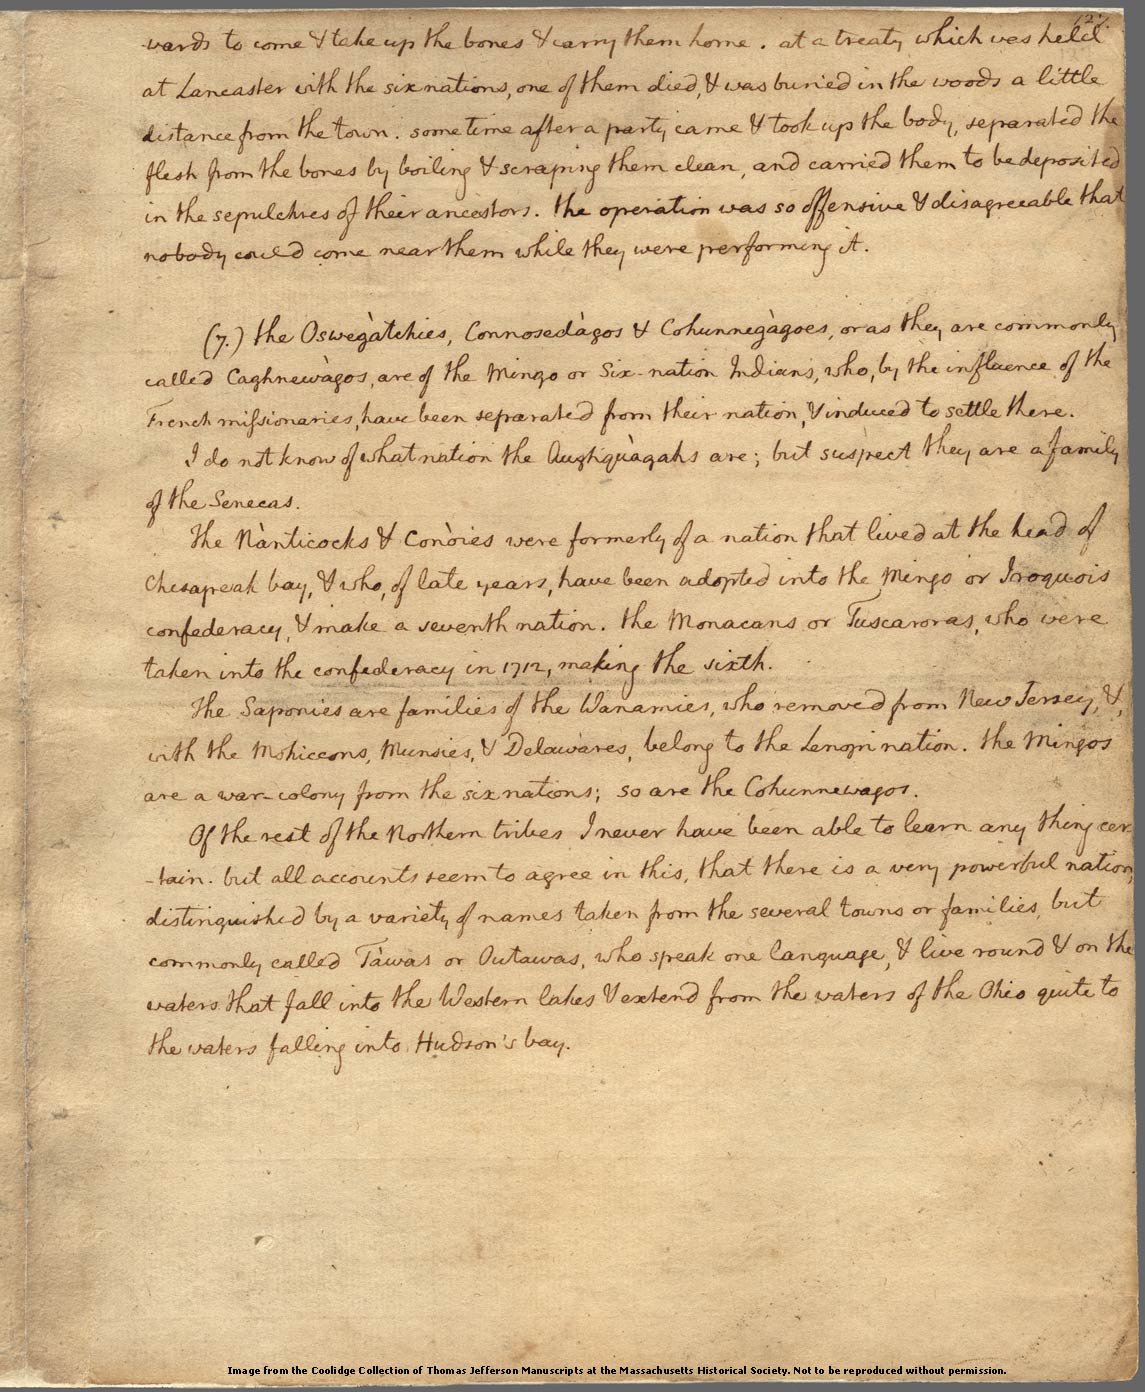 127.
-wards to come & take up the bones & carry them home. at a treaty which was held
at Lancaster with the six nations, one of them died, & was buried in the woods a little
distance from the town. some time after a party came & took up the body, separated the
flesh from the bones by boiling & scraping them clean, and carried them to be deposited
in the sepulchres of their ancestors. the operation was so offensive & disagreeable that
nobody could come near them while they were performing it.
(7.) the Oswegàtchies, Connosedàgos & Cohunnegàgoes, or as they are commonly
called Caghnewàgos, are of the Mingo or Six-nation Indians, who, by the influence of the
French missionaries, have been separated from their nation, & induced to settle there.
I do not know of what nation the Aughquàgahs are; but suspect they are a family
of the Senecas.
the Nànticocks & Conòies were formerly of a nation that lived at the head of
Chesapeak bay, & who, of late years, have been adopted into the Mingo or Iroquois
confederacy, & make a seventh nation. the Monacans or Tuscaroras, who were
taken into the confederacy in 1712, making the sixth.
the Saponies are families of the Wanamies, who removed from New Jersey, &,
with the Mohiccons, Munsies, & Delawares, belong to the Lenopi nation. the Mingos
are a war-colony from the six nations; so are the Cohunnewagos.
Of the rest of the Northern tribes I never have been able to learn any thing cer-
-tain. but all accounts seem to agree in this, that there is a very powerful nation,
distinguished by a variety of names taken from the several towns or families, but
commonly called Tàwas or Outawas, who speak one language, & live round & on the
waters that fall into the Western lakes & extend from the waters of the Ohio quite to
the waters falling into Hudson's bay.
Image from the Coolidge Collection of Thomas Jefferson Manuscripts at the Massachusetts Historical Society. Not to be reproduced without permission.